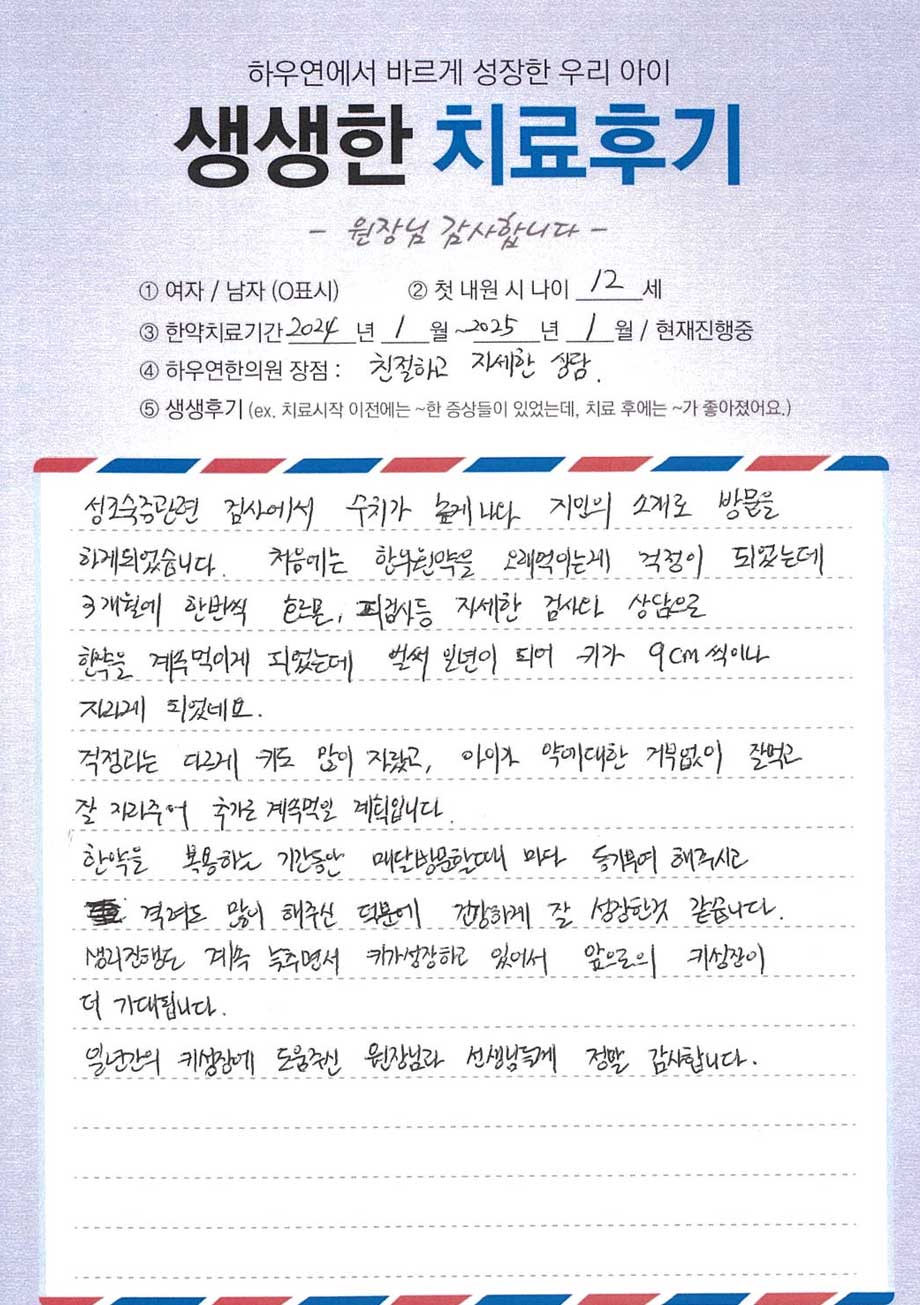 하우연에서 바르게 성장한 우리 아이
생생한 치료후기
- 원장님 감사합니다 -
① 여자 / 남자 (O표시) ② 첫 내원 시 나이 12 세
③ 한약치료기간 2024 년 1 월 ~ 2025 년 1 월 / 현재진행중
④ 하우연한의원 장점 : 친절하고 자세한 상담.
⑤ 생생후기 (ex. 치료시작 이전에는 ~한 증상들이 있었는데, 치료 후에는 ~가 좋아졌어요.)
성조숙증관련 검사에서 수치가 높게 나와 지인의 소개로 방문을
하게되었습니다. 처음에는 한약을 오래먹이는게 걱정이 되었는데
3개월에 한번씩 호르몬, 피검사등 자세한 검사와 상담으로
한약을 계속먹이게 되었는데 벌써 일년이 되어 키가 9cm 씩이나
자라게 되었네요.
걱정과는 다르게 키도 많이 자랐고, 아이도 약에대한 거부없이 잘먹고
잘 자라주어 추가로 계속먹일 계획입니다.
한약을 복용하는 기간동안 매달방문할때 마다 동기부여 해주시고
격려도 많이 해주신 덕분에 건강하게 잘 성장한것 같습니다.
생리진행도 계속 늦추면서 키가성장하고 있어서 앞으로의 키성장이
더 기대됩니다.
일년간의 키성장에 도움주신 원장님과 선생님들께 정말 감사합니다.